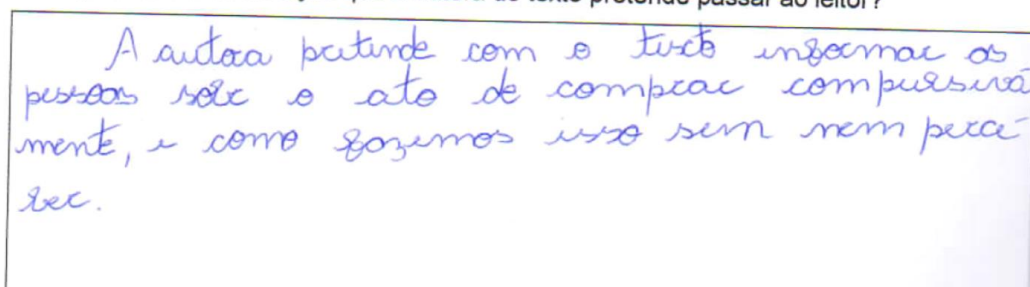 autora do texto pretende passar ao leitor?
A autora pretende com o texto informar as
pessoas sobre o ato de comprar compulsiva
mente, e como fazemos isso sem nem perce-
ber.